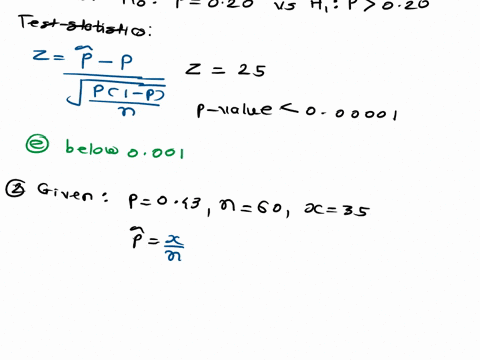 H0: P = 0.20 vs H1: P > 0.20
Test statistic:
Z = p̂ - P / √(P(1-P)/n) Z = 25
P-value < 0.00001
ⓔ below 0.001
② Given: P = 0.43, n = 60, x = 35
p̂ = x/n